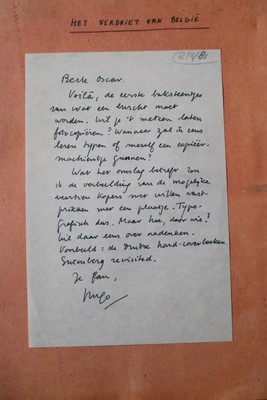 HET VERDRIET VAN BELGIË
Beste Oscar.
Voilà, de eerste baksteentjes
van wat een burcht moet
worden. Wil je 't meteen laten
fotocopiëren? Wanneer zal ik eens
leren typen of mezelf een copiëer-
machientje gunnen?
Wat het omslag betreft zou
ik de verbeelding van de mogelijke
kopers niet willen vast-
prikken met een plaatje. Typo-
grafisch dus. Maar hoe, door wie?
Wil daar eens over nadenken.
Voorbeeld: de Britse hard-cover boeken.
Gutenberg revisited.
Je
Hugo